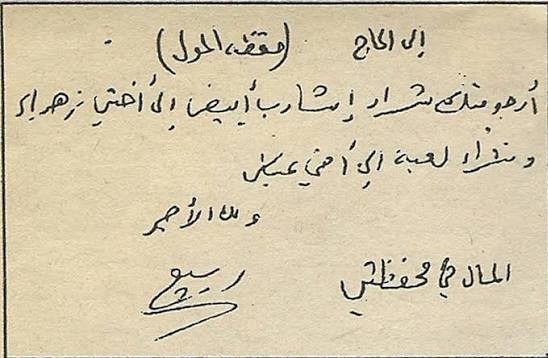 إلى الحاج (موقف المول)
أرجو منك شراء إيشارب أبيض إلى أختي زهراء
وشراء لعبة إلى أخي عباس
ولك الأجر
المال في محفظتي
ربيع